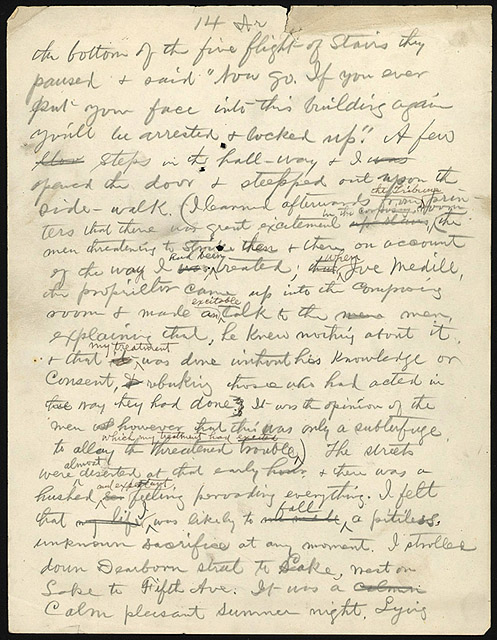 14 Ar
the bottom of the five flight of stairs they
paused & said "Now go. If you ever
put your face into this building again
you'll be arrested & locked up." A few
steps in the hall-way & I was
opened the door & stepped out upon the
side-walk. (I learned afterwards from prin-
the Tribune
ters that there was great excitement
in the composing room
the
men threatening to strike then & there on account
of the way I was treated; but Joe Medill,
had been
when
the proprietor came up into the composing
room & made an talk to the mens men,
excitable
explaining that, he knew nothing about it
& that it was done without his knowledge or
my treatment
consent, & rebuking those who had acted in
the way they had done. It was the opinion of the
men however that this was only a subterfuge
to allay the threatened trouble,) The streets
which my treatment had excited
were deserted at that early hour & there was a
almost
hushed, feeling pervading everything. I felt
an expectant
that my life was likely to a pitiless,
I
fall
unknown sacrifice at any moment. I strolled
down Dearborn street to Lake, west on
Lake to Fifth Ave. It was a calm
Calm pleasant summer night. Lying